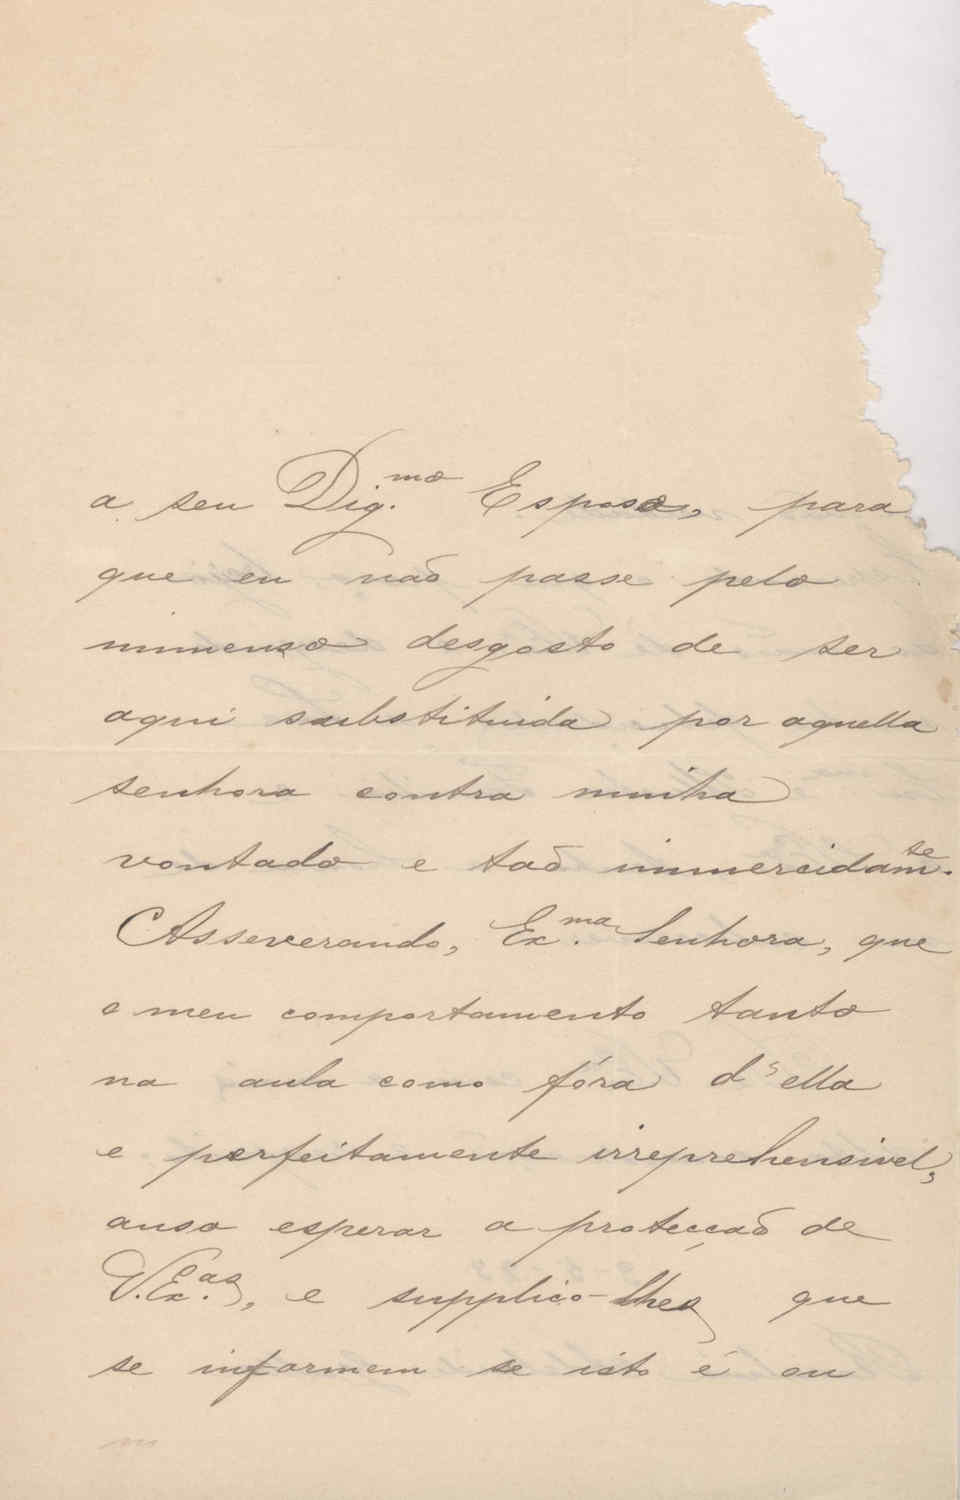 a seu Dig.mo Esposo, para
que eu não passe pelo
immenso desgosto de ser
aqui substituida por aquella
senhora contra minha
vontade e taõ immercidamte.
Asseverando, Ex.ma Senhora, que
o meu comportamento tanto
na aula como fóra d'ella
e perfeitamente irreprehensivel,
auso esperar a protecçaõ de
V. Ex.as, e supplico-lhes que
se informem se isto é ou